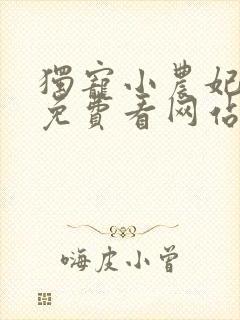 獨寵小農妃
免費看网站
嗨皮小曾